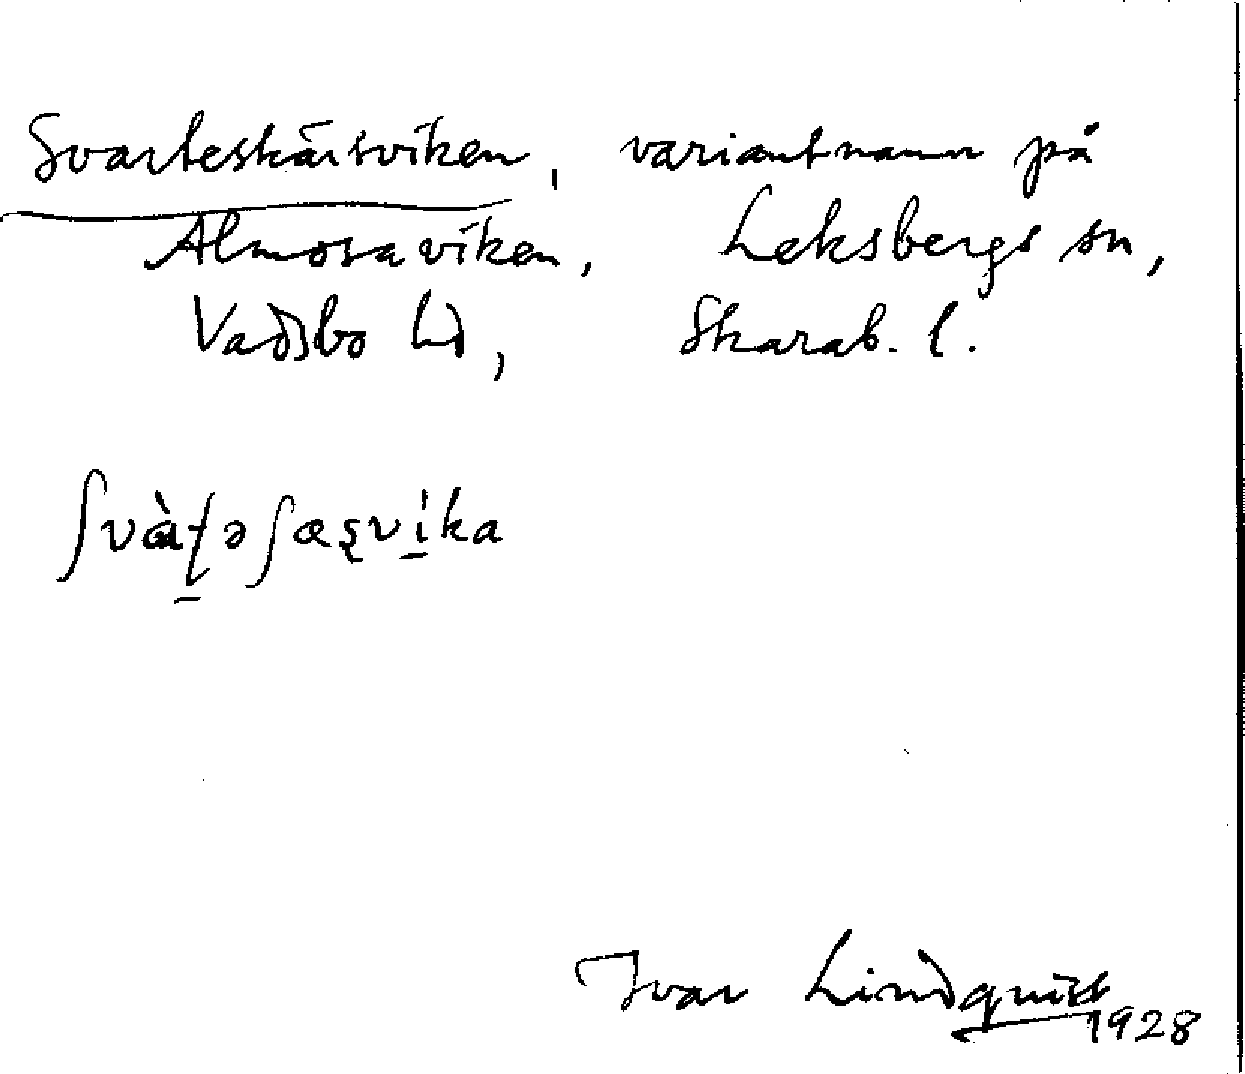 Svarteskärsviken, variantnamn på
Almosaviken, Leksbergs sn,
Vadsbo hd, Skarab. l.
ʃvàʈəʃæʂvíka
Ivar Lindquist
1928